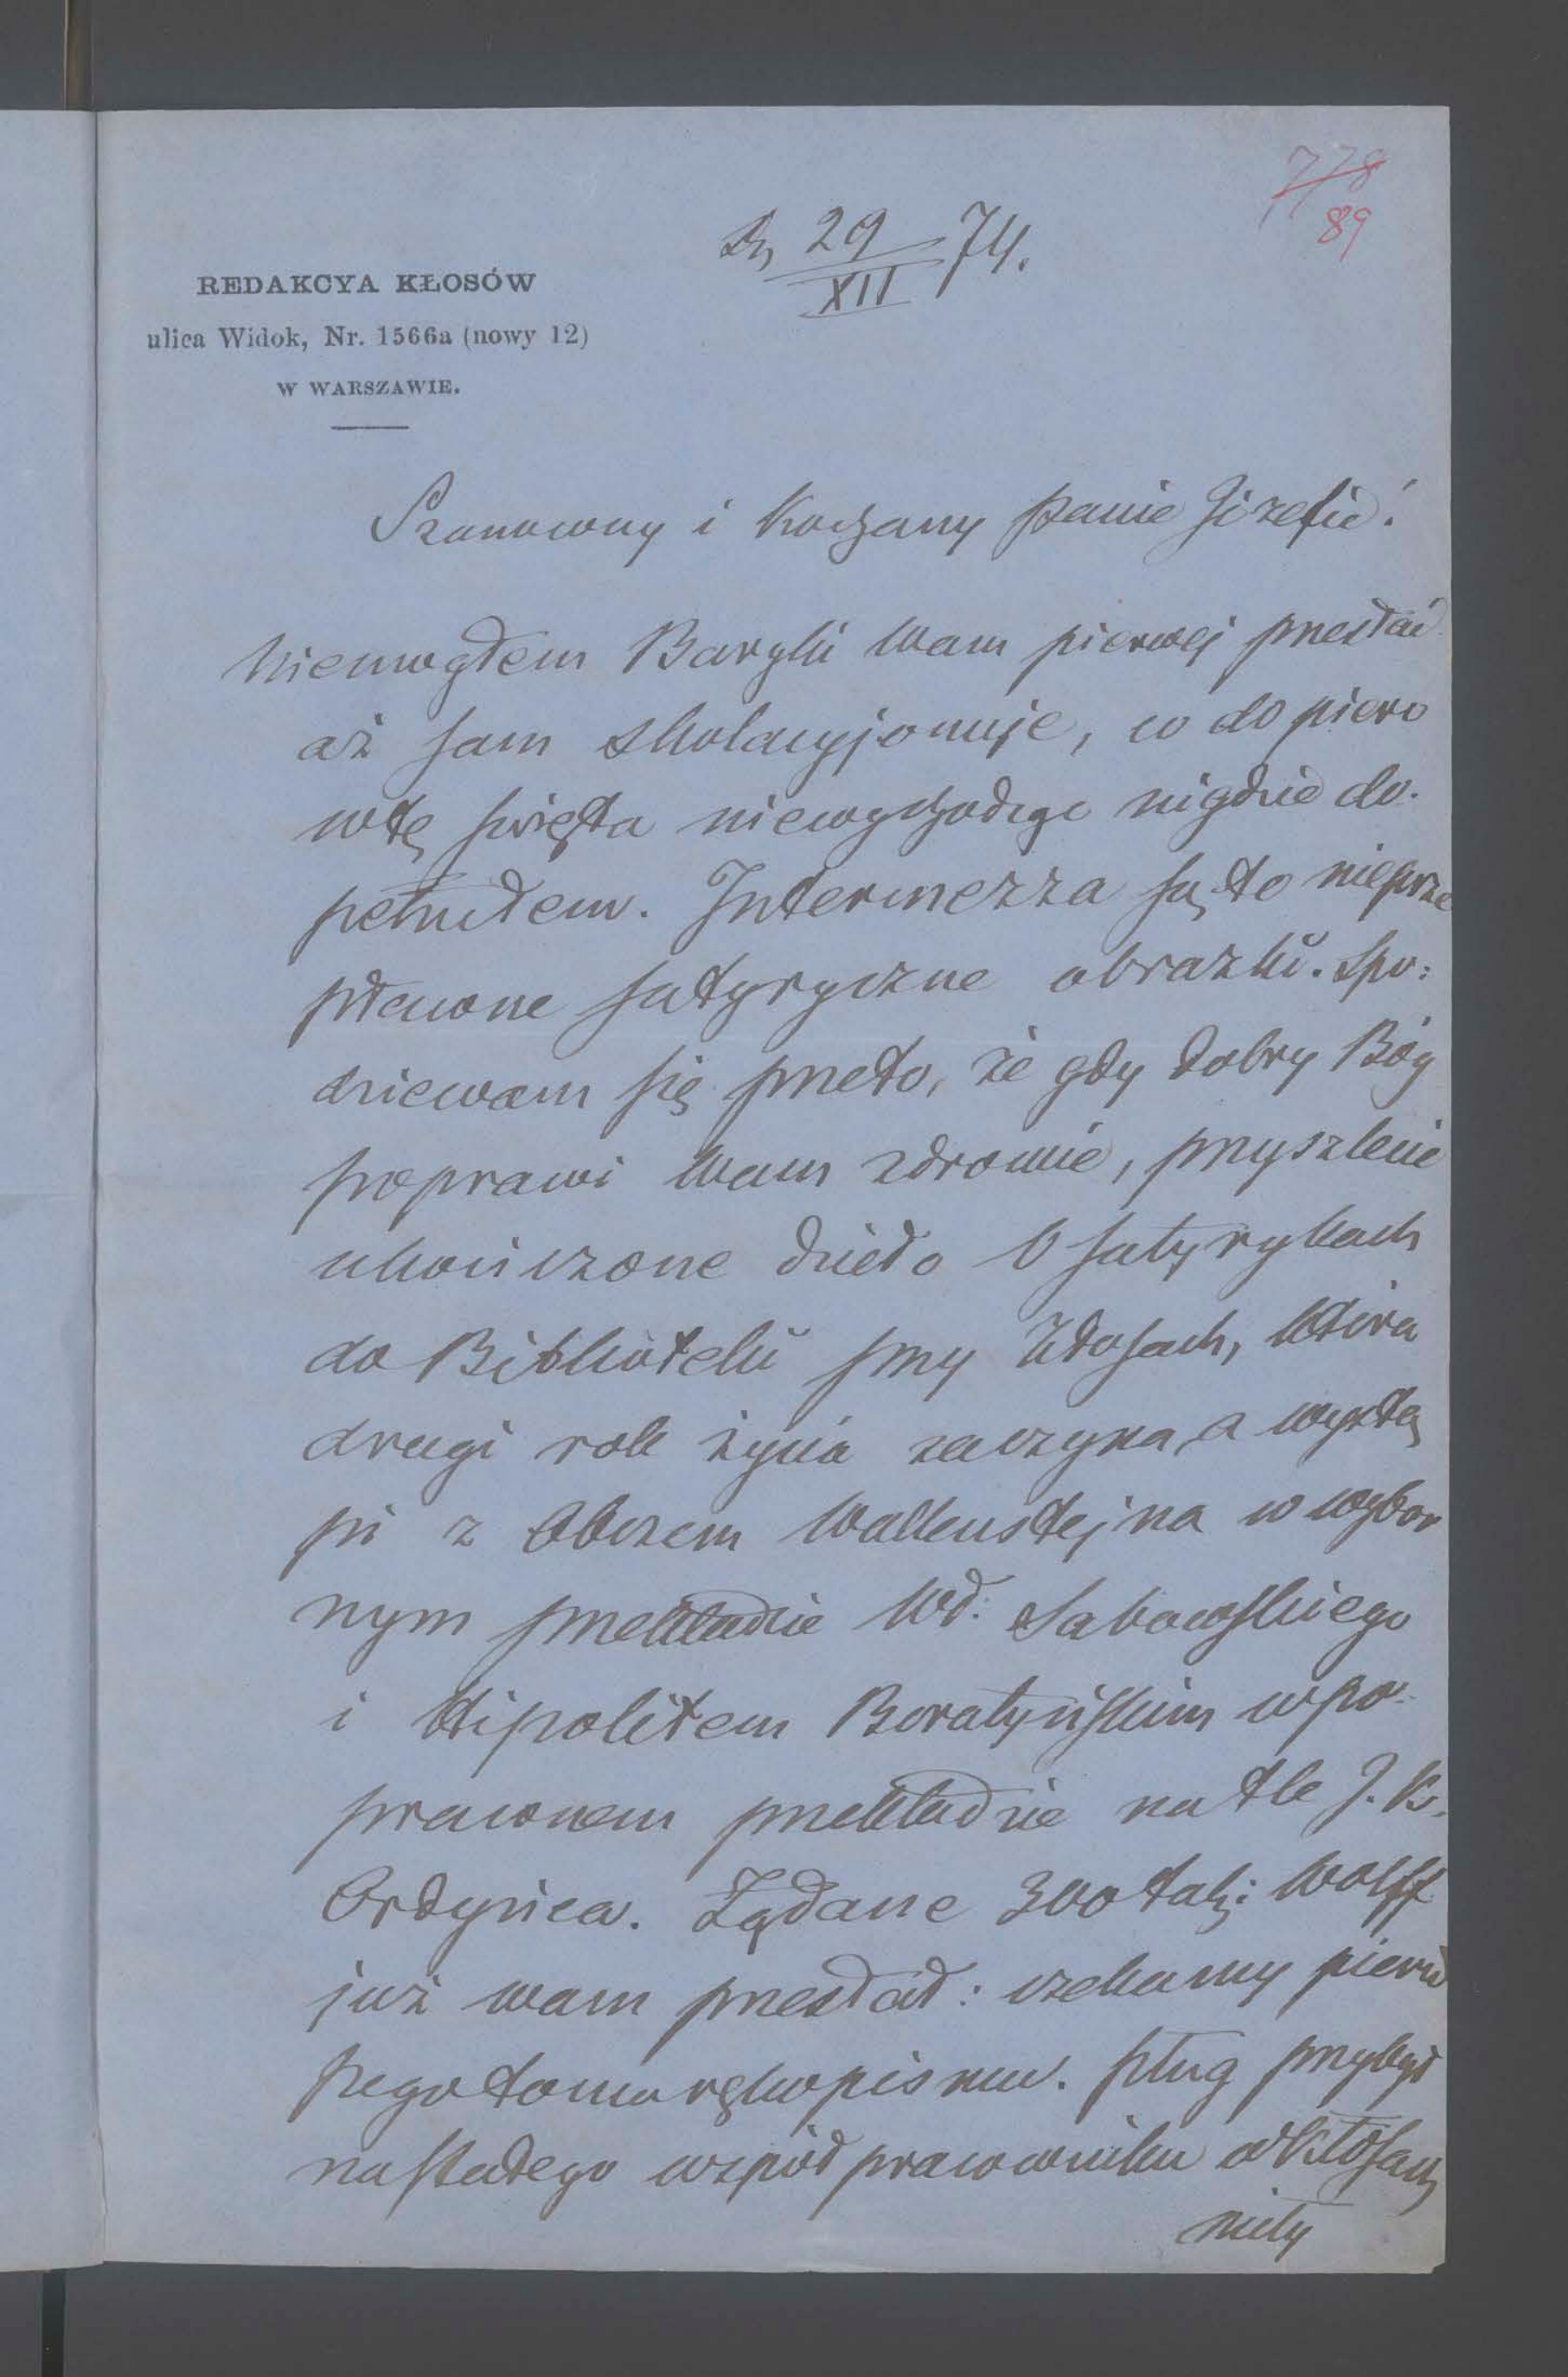 778
89
D. 29/XII 74.
REDAKCYA KŁOSÓW
ulica Widok, Nr. 1566a (nowy 12)
W WARSZAWIE.
Szanowny i Kochany Panie Józefie!
Niemogłem Baryki Wam pierwej przesłać
aż sam skolacyjonuję, co dopiero
w tę święta niewychodząc nigdzie do-
pełniłem. Intermezza są to nieprze
płacone satyryczne obrazki. Spo=
dziewam się przeto, że gdy dobry Bóg
poprawi Wam zdrowie, przyszlecie
ukończone dzieło O satyrykach
do Biblioteki przy Kłosach, która
drugi rok życia zaczyna, a wystą
pi z Obozem Wallensztejna w wybor
nym przekładzie Wł: Sabowskiego
i Hipolitem Boratyńskim w po-
prawnem przekładzie na tle J. K.
Ordyńca. Żądane 300 tal: Wolff
już wam przesłał: czekamy pierw
szego tomu rękopismu. Pług przybył
na stałego współpracownika w Kłosach